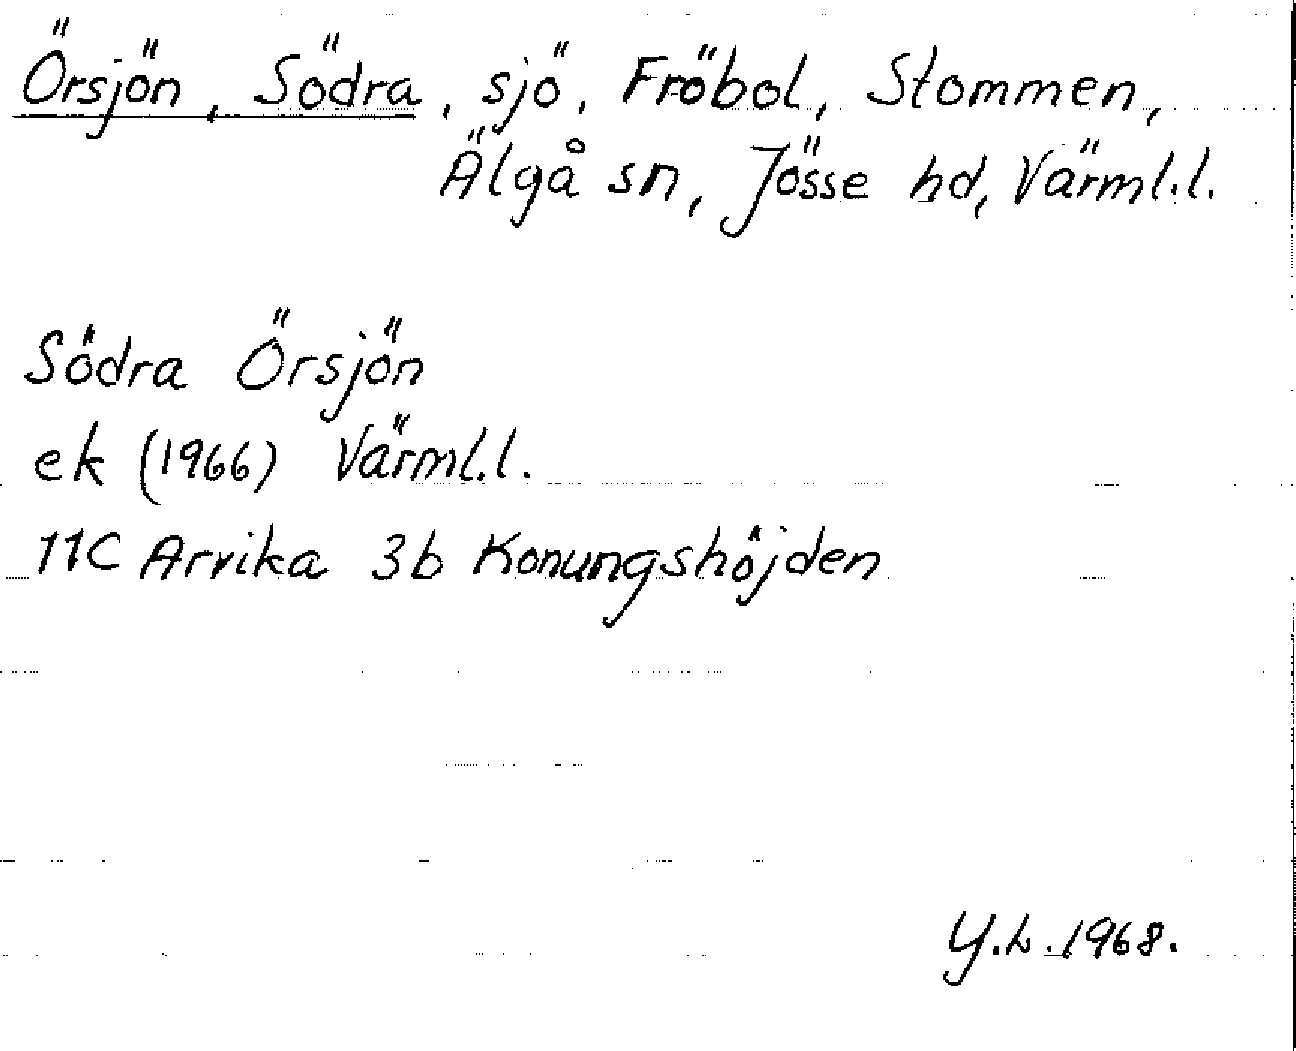 Örsjön, Södra, sjö, Fröbol, Stommen,
Älgå sn, Jösse hd, Värml.l.
Södra Örsjön
ek (1966) Värml.l.
11C Arvika 3b Konungshöjden
Y.L.1968.